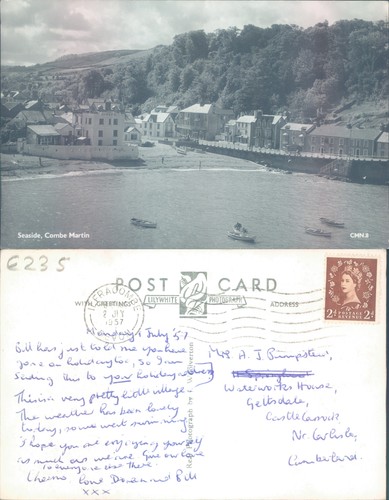 Seaside, Combe Martin
CMN.8
E235
POST CARD
WITH GREETINGS
LILYWHITE PHOTOGRAPH
ADDRESS
ILFRACOMBE
1957
POSTAGE REVENUE
2d 2d
Monday 1st July '57
Bill has just told me you have
gone on holiday too, so I'm
sending this to your holiday address
This is a very pretty little village.
The weather has been lovely
today, some went swimming.
I hope you are enjoying yourself
as much as we are. Give our love
to everyone else there.
Cheerio Love Doreen and Bill
xxx
Real Photograph by
A. J.
House,
Castle Carrock
Nr. Carlisle,
Cumberland.